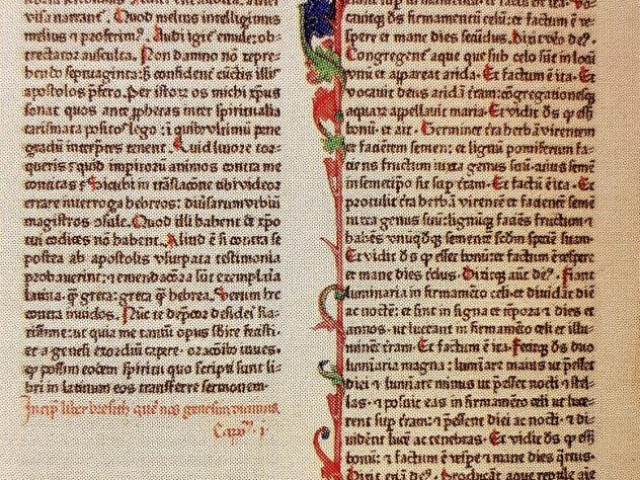 Quod melius intelligimus
melius ⁊ proferim⁹. Audi igit̄ emule: ob-
trectator ausculta. Non damno nō repre-
hendo septuaginta: s̄ confidenē cūctis illis
apostolos p̄fero. Per istoꝝ os michi xp̄us
sonat quos ante ꝓpheras inter spiritualia
carismata positos lego: ī quib⁹ vltimū pene
gradū interpretes tenent. Quid liuore tor-
queris: quid imperitoꝝ animos contra me
concitas? Sicubi in trāslacōne tibi videor
errare interroga hebreos: diu͛sarum vrbiū
magistros ꝯsule. Quod illi habent de xp̄o
tui codices nō habent. Aliud ē si contra se
postea ab apostolis vsurpata testimonia
probauerint: ⁊ emendacōra sūt exemplaria
latina. q̄ greca: greca q̄ hebrea. Verum hec
contra inuidos. Nūc te dep̄cor desideri ka-
rissime: ut quia me tantū opus sb̄ire fecisti
et a genesi exordiū capere. or̄acōib⁹ iuues.
q̊ possim eodem spiritu quo scripti sunt li-
bri in latinum eos transferre sermonem.
Incipit liber bresith quē nos genesim dicim⁹.
Capm̄. i.
cauitq̄ ds̄ firmamentū celū: et factum ē ve-
spere et mane dies secūdus. Dixit v̊o de⁹.
Congregent̄ aque que sub celo sūt in locū
vnū et appareat arida. Et factum ē ita. Et
vocauit deus aridā t̄ram: cōgregationesq̄
aquaꝝ appellauit maria. Et vidit ds̄ q̄ eēt
bonū. et ait. Germinet t̄ra herbā virentem
et facientem semen: et lignū pomiferum fa-
ciens fructum iuxta genus suū. cuius semē
in semetip̄o sit sup̄ t̄ram. Et factū ē ita. Et
protulit t̄ra herbā virentē et facientē semē
iuxta genus suū: lignūq̄ faciēs fructum. ⁊
habēs vnūqd̄q̄ sementē sc̄dm sp̄em suam.
Et vidit ds̄ q̄ esset bonū: et factum ē vesp̄e
et mane dies t͛cius. Dixitq̄ aut̄ de⁹. Fiant
luminaria in firmamēto celi. et diuidāt diē
ac noctē: et sint in signa et tp̄ora ⁊ dies et
annos. ut luceant in firmamēto celi et illu-
minēt t̄ram. Et factum ē ita. Fecitq̄ ds̄ duo
lumīaria magna: lumīare maius ut p̄esset
diei ⁊ lumīare minus ut p̄esset nocti ⁊ stel-
las. ⁊ posuit eas in firmamēto celi ut luce-
rent sup̄ t̄ram: ⁊ p̄essent diei ac nocti. ⁊ di-
viderēt lucē ac tenebras. Et vidit ds̄ q̄ eēt
bonū: ⁊ factum ē vesp̄e ⁊ mane dies q̄rtus.
Dixit eciā de⁹. Producāt aque reptile aīe